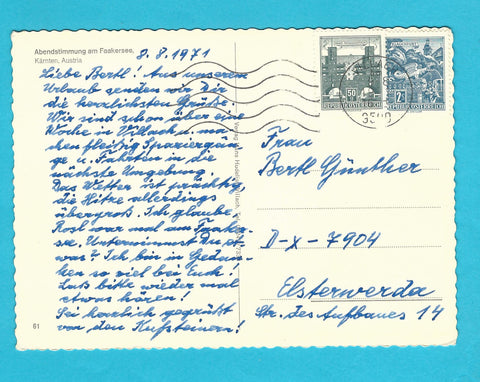 Abendstimmung am Faakersee,
Kärnten, Austria
8.8.1971
Liebe Bertl! Aus unserem
Urlaub senden wir Dir
die herzlichsten Grüße.
Wir sind schon über eine
Woche in Villach u. ma-
chen fleißig Spaziergän-
ge u. Fahrten in die
nächste Umgebung.
Das Wetter ist prächtig,
die Hitze allerdings
übergroß. Ich glaube,
Rosl war mal am Faaker-
see. Unternimmst Du et-
was? Ich bin in Gedan-
ken so viel bei Euch!
Laß bitte wieder mal
etwas hören!
Sei herzlich gegrüßt
von den Kufsteinern!
61
50
REPUBLIK ÖSTERREICH
KLAGENFURT
REPUBLIK ÖSTERREICH
Frau
Bertl Günther
D-X-7904
Elsterwerda
Str. des Aufbaues 14